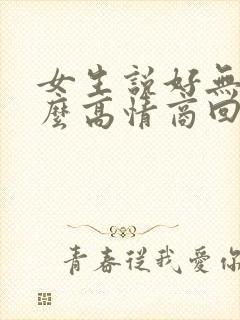 女生說好無
麼高情商回
青春從我愛你